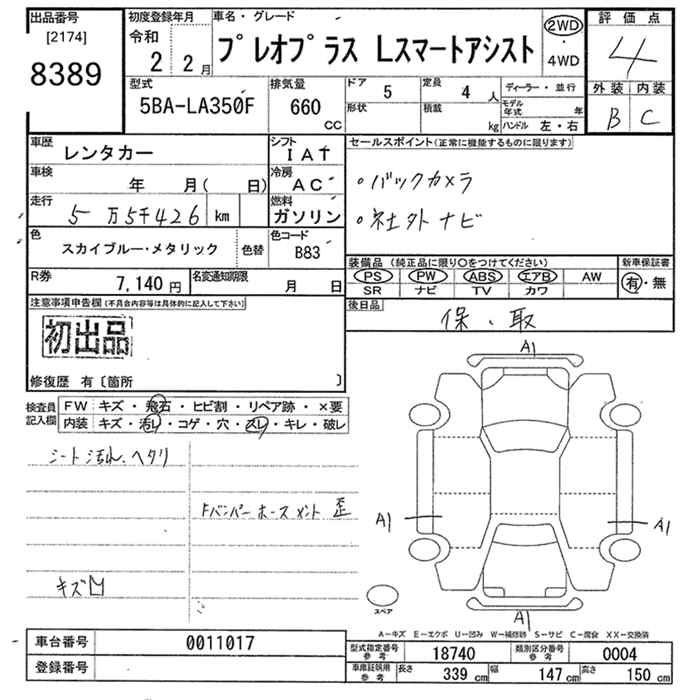 出品番号
[2174]
8389
初度登録年月
令和
2 2月
車名・グレード
プレオプラス Lスマートアシスト
2WD
・
4WD
評価点
4
外装 内装
B C
型式
5BA-LA350F
排気量
660
CC
ドア 5
形状
定員 4 人
積載 kg
ディーラー・並行
モデル年式 年
ハンドル 左・右
車歴 レンタカー
シフト IAT
車検 年 月( 日)
冷房 AC
走行 5万5千426 km
燃料 ガソリン
色 スカイブルー・メタリック 色替
色コード B83
R券 7,140円
名変通知期限 月 日
セールスポイント(正常に機能するものに限ります)
・バックカメラ
・社外ナビ
装備品(純正品に限り○をつけてください)
PS PW ABS エアB AW
SR ナビ TV カワ
新車保証書
有・無
後日品
保・取
注意事項申告欄(不具合内容等は具体的に記入して下さい)
初出品
修復歴 有〔箇所 〕
検査員記入欄
FW キズ・飛石・ヒビ割・リペア跡・×要
内装 キズ・汚レ・コゲ・穴・スレ・キレ・破レ
シート汚れ、ヘタリ
Fバンパーホースメント 歪
キズ凹
A1
A1
A1
A1
スペア
A-キズ E-エクボ U-凹み W-補修跡 S-サビ C-腐食 XX-交換済
車台番号 0011017
登録番号
型式指定番号参考 18740
類別区分番号参考 0004
車庫証明用参考 長さ 339cm 幅 147cm 高さ 150cm